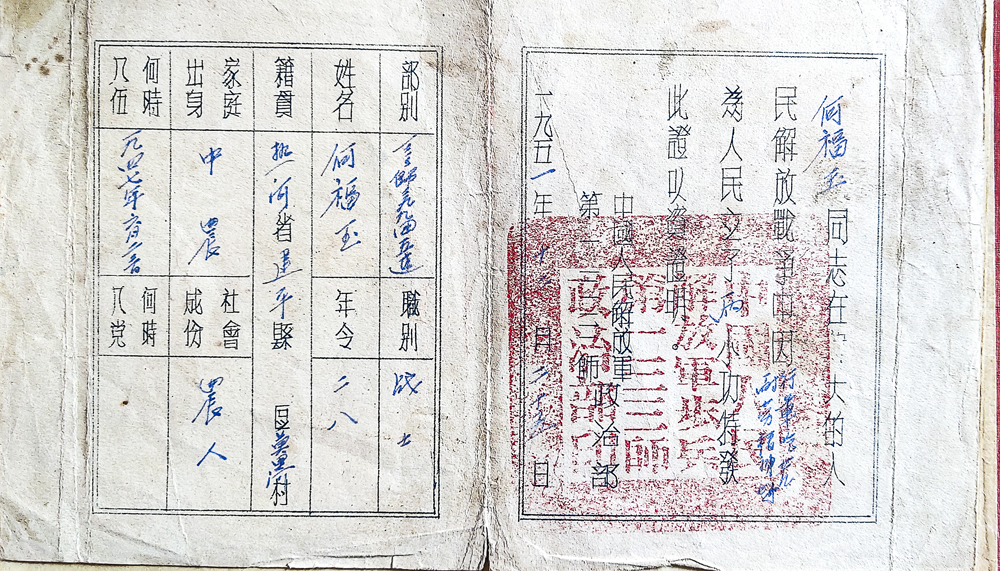 何福玉同志在伟大的人
民解放戰争中因行軍吃苦
耐劳精神好
為人民立了兩小功特發
此證以資證明。
中國人民解放軍
第一三三師政治部
一九五一年十二月二十五日
中國人民
解放軍步兵
第一三三師
政治部印
部別
職別 战士
姓名 何福玉
年令 二八
籍貫 热河省建平縣 區 村
家庭出身 中農
社會成份 農人
何時入伍
何時入党